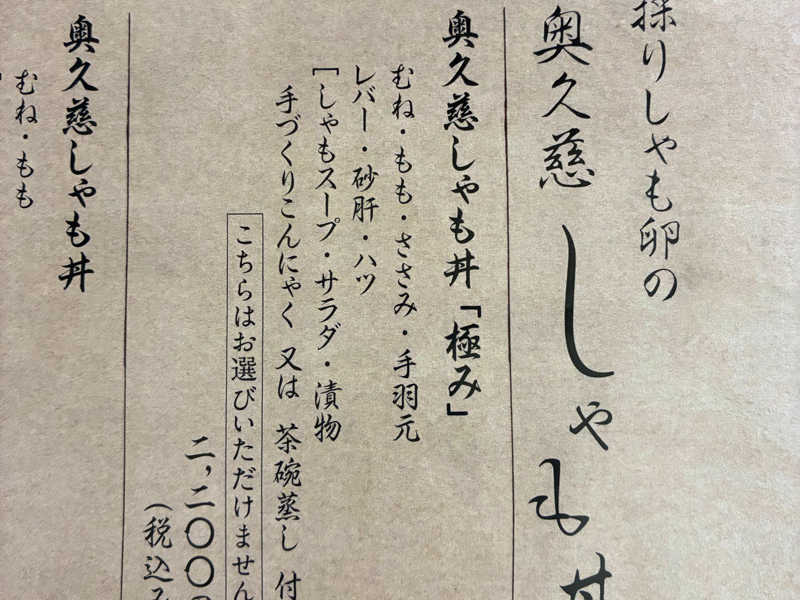 採りしゃも卵の
奥久慈しゃも丼
奥久慈しゃも丼「極み」
むね・もも・ささみ・手羽元
レバー・砂肝・ハツ
［しゃもスープ・サラダ・漬物
手づくりこんにゃく 又は 茶碗蒸し 付
こちらはお選びいただけません
二,二〇〇
（税込み
奥久慈しゃも丼
むね・もも